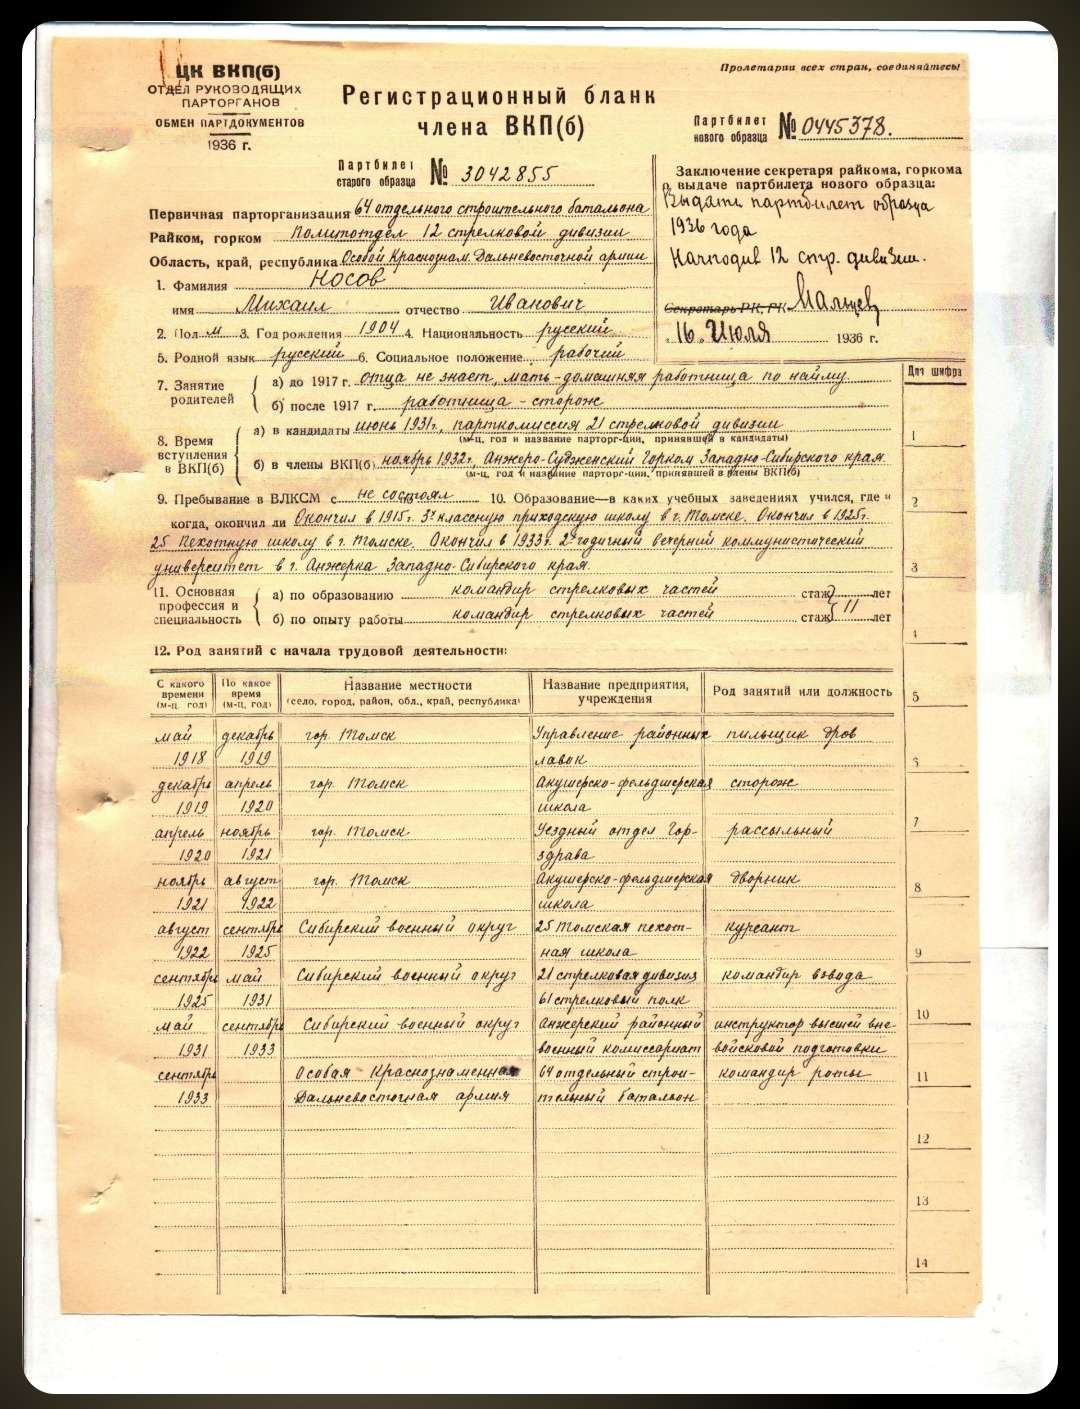 ЦК ВКП(б)
ОТДЕЛ РУКОВОДЯЩИХ
ПАРТОРГАНОВ
ОБМЕН ПАРТДОКУМЕНТОВ
1936 г.
Пролетарии всех стран, соединяйтесь!
Регистрационный бланк
члена ВКП(б)
Партбилет нового образца № 0445378.
Партбилет старого образца № 3042855
Заключение секретаря райкома, горкома
о выдаче партбилета нового образца:
Выдать партбилет образца
1936 года
Начподив 12 стр. дивизии.
Секретарь РК, ГК Мальцев
"16" Июля 1936 г.
Первичная парторганизация 64 отдельного строительного батальона
Райком, горком Политотдел 12 стрелковой дивизии
Область, край, республика Особой Краснознам. Дальневосточной армии
1. Фамилия Носов
имя Михаил отчество Иванович
2. Пол м 3. Год рождения 1904 4. Национальность русский
5. Родной язык русский 6. Социальное положение рабочий
Для шифра
7. Занятие родителей
а) до 1917 г. отца не знает, мать - домашняя работница по найму
б) после 1917 г. работница - сторож
8. Время вступления в ВКП(б)
а) в кандидаты июнь 1931г., парткомиссия 21 стрелковой дивизии
(м-ц, год и название парторг-ции, принявшей в кандидаты)
б) в члены ВКП(б) ноябрь 1932г, Анжеро-Судженский Горком Западно-Сибирского края.
(м-ц, год и название парторг-ции, принявшей в члены ВКП(б)
9. Пребывание в ВЛКСМ с не состоял 10. Образование—в каких учебных заведениях учился, где и
когда, окончил ли Окончил в 1915г. 3х классную приходскую школу в г. Томске. Окончил в 1925г.
25 пехотную школу в г. Томске. Окончил в 1933г. 2-годичный вечерний коммунистический
университет в г. Анжерка Западно-Сибирского края.
11. Основная профессия и специальность
а) по образованию командир стрелковых частей стаж лет
б) по опыту работы командир стрелковых частей стаж 11 лет
12. Род занятий с начала трудовой деятельности:
С какого времени (м-ц, год) По какое время (м-ц, год) Название местности (село, город, район, обл., край, республика) Название предприятия, учреждения Род занятий или должность
май декабрь гор. Томск Управление районных пильщик дров
1918 1919 лавок
декабрь апрель гор. Томск Акушерско-фельдшерская сторож
1919 1920 школа
апрель ноябрь гор. Томск Уездный отдел Гор- рассыльный
1920 1921 здрава
ноябрь август гор. Томск Акушерско-фельдшерская дворник
1921 1922 школа
август сентябрь Сибирский военный округ 25 Томская пехот- курсант
1922 1925 ная школа
сентябрь май Сибирский военный округ 21 стрелковая дивизия командир взвода
1925 1931 61 стрелковый полк
май сентябрь Сибирский военный округ Анжерский районный инструктор высшей вне-
1931 1933 военный комиссариат войсковой подготовки
сентябрь Особая Краснознаменная 64 отдельный строи- командир роты
1933 Дальневосточная армия тельный батальон
1
2
3
4
5
6
7
8
9
10
11
12
13
14